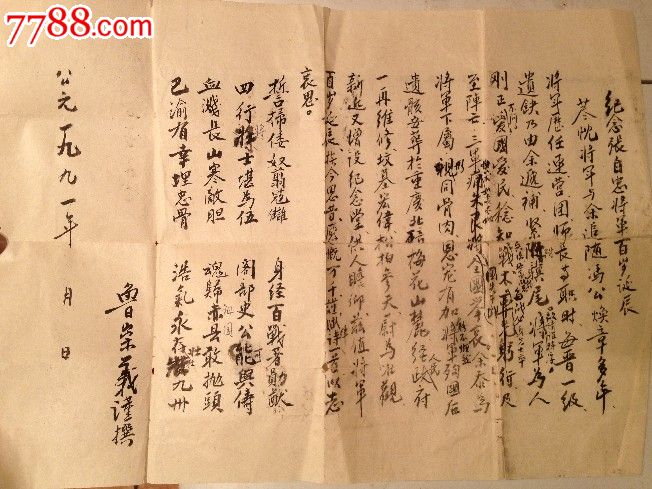 7788.com
中国收藏热线
纪念张自忠将军百岁诞辰
荩忱将军与余追随冯公焕章多年
将军历任连营团师长等职时每晋一级
遗缺乃由余递补紧随骥尾将军为人
刚正爱国爱民
至阵亡三军痛哭全国举哀余忝为
将军下属视同骨肉恩宠有加将军殉国后
遗骸安葬于重庆北碚梅花山麓经政府
一再维修坟基宏伟松柏参天蔚为壮观
新近又增设纪念堂供人瞻仰兹值将军
百岁诞辰抚今思昔感慨万千谨赋诗一首以志
哀思。
誓扫倭奴剪寇雠 身经百战著勋猷
四行将士堪为伍 阁部史公能与俦
血溅长山寒敌胆 魂归赤县敢抛头
巴渝有幸埋忠骨 浩气永存壮九州
鲁崇义谨撰
公元一九九一年 月 日